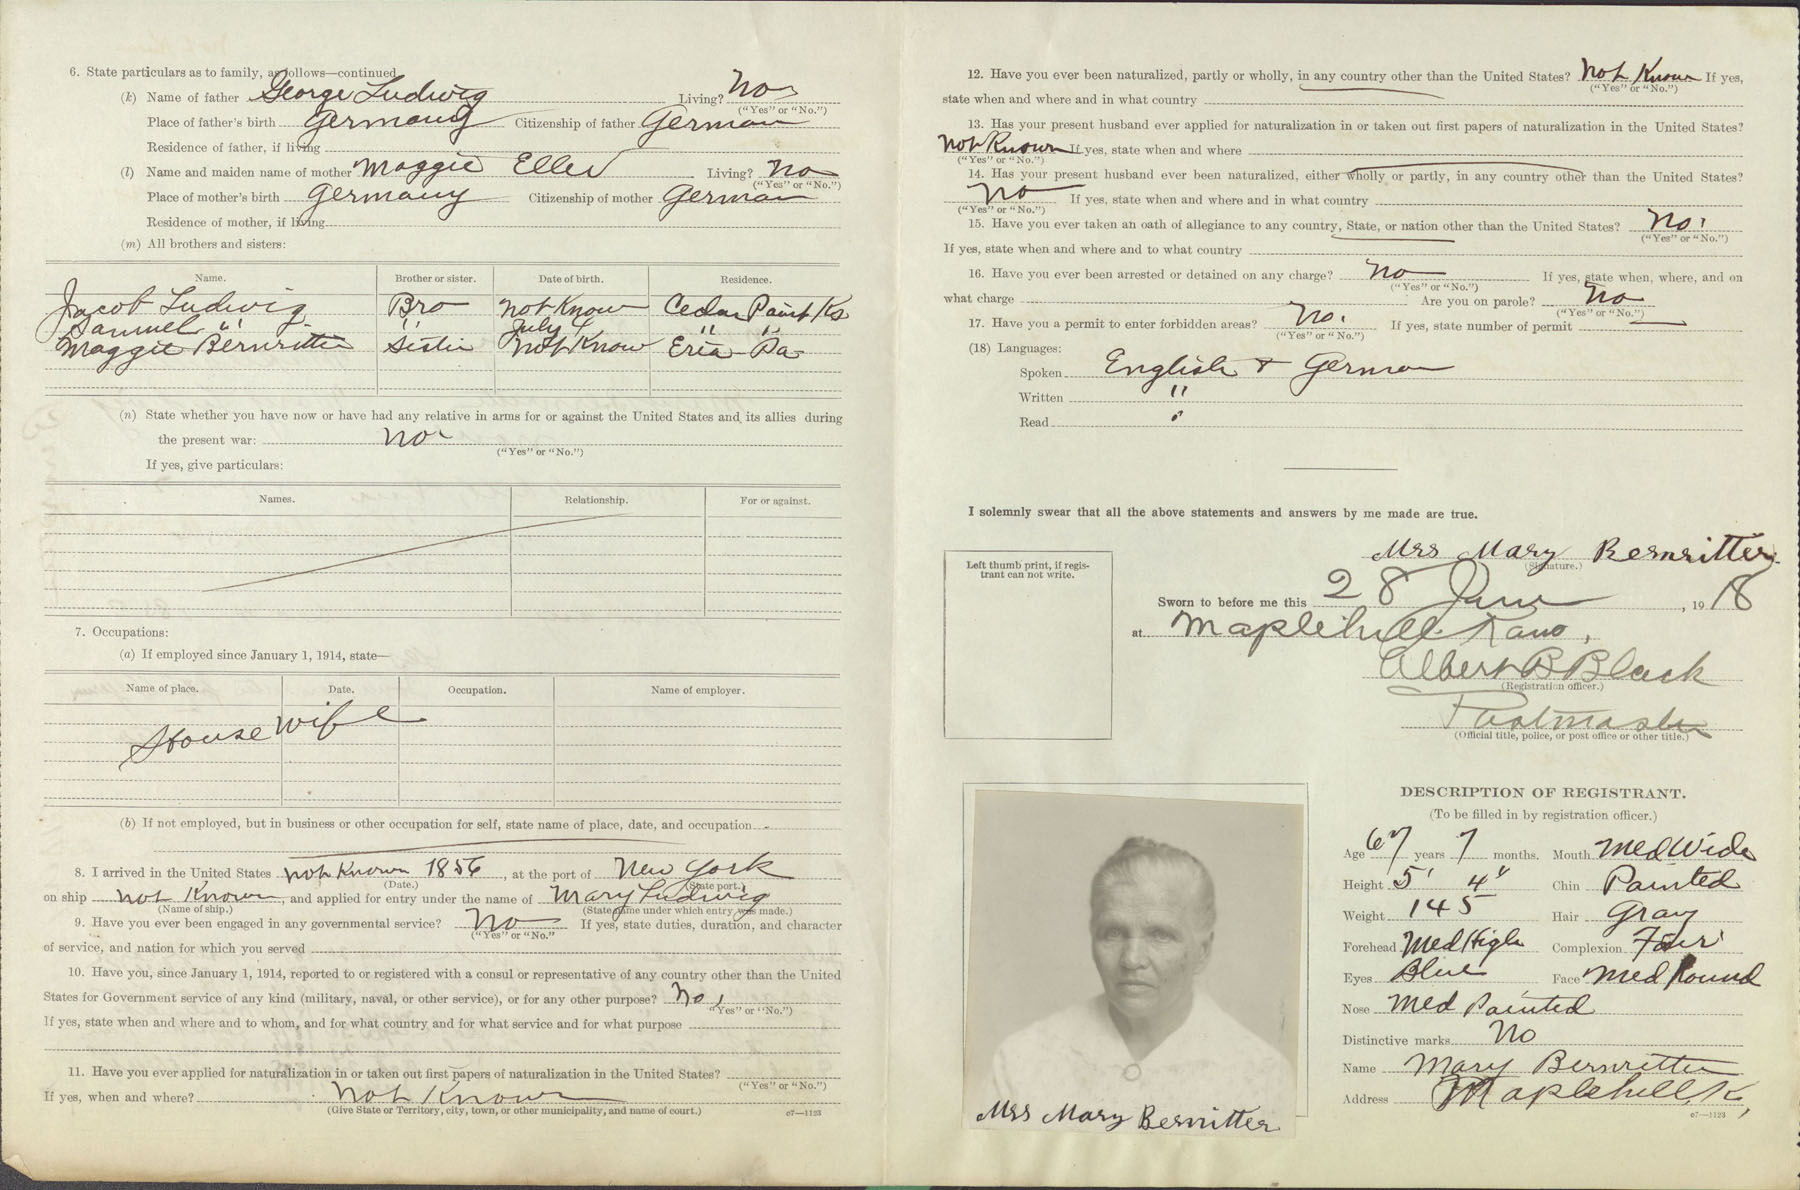 6. State particulars as to family, as follows—continued
(k) Name of father George Ludwig Living? No
("Yes" or "No.")
Place of father's birth Germany Citizenship of father German
Residence of father, if living
(l) Name and maiden name of mother Maggie Eller Living? No
("Yes" or "No.")
Place of mother's birth Germany Citizenship of mother German
Residence of mother, if living
(m) All brothers and sisters:
Name. Brother or sister. Date of birth. Residence.
Jacob Ludwig Bro not Know Cedar Point Ks
Samuel " " July 4 " "
Maggie Bernritter Sister not Know Eria Pa
(n) State whether you have now or have had any relative in arms for or against the United States and its allies during
the present war: no
("Yes" or "No.")
If yes, give particulars:
Names. Relationship. For or against.
7. Occupations:
(a) If employed since January 1, 1914, state—
Name of place. Date. Occupation. Name of employer.
House Wife
(b) If not employed, but in business or other occupation for self, state name of place, date, and occupation
8. I arrived in the United States not Known 1856, at the port of New York
(Date.) (State port.)
on ship not Known, and applied for entry under the name of Mary Ludwig
(Name of ship.) (State name under which entry was made.)
9. Have you ever been engaged in any governmental service? No If yes, state duties, duration, and character
("Yes" or "No."
of service, and nation for which you served
10. Have you, since January 1, 1914, reported to or registered with a consul or representative of any country other than the United
States for Government service of any kind (military, naval, or other service), or for any other purpose? No
"Yes" or "No.")
If yes, state when and where and to whom, and for what country and for what service and for what purpose
11. Have you ever applied for naturalization in or taken out first papers of naturalization in the United States?
("Yes" or "No.")
If yes, when and where? not Known
(Give State or Territory, city, town, or other municipality, and name of court.) c7—1123
12. Have you ever been naturalized, partly or wholly, in any country other than the United States? not Known If yes,
("Yes" or "No.")
state when and where and in what country
13. Has your present husband ever applied for naturalization in or taken out first papers of naturalization in the United States?
not Known If yes, state when and where
("Yes" or "No.")
14. Has your present husband ever been naturalized, either wholly or partly, in any country other than the United States?
No If yes, state when and where and in what country
("Yes" or "No.")
15. Have you ever taken an oath of allegiance to any country, State, or nation other than the United States? No
("Yes" or "No.")
If yes, state when and where and to what country
16. Have you ever been arrested or detained on any charge? No If yes, state when, where, and on
("Yes" or "No.")
what charge Are you on parole? No
("Yes" or "No.")
17. Have you a permit to enter forbidden areas? No. If yes, state number of permit
("Yes" or "No.")
(18) Languages:
Spoken English & German
Written "
Read "
I solemnly swear that all the above statements and answers by me made are true.
Mrs Mary Bernritter
(Signature.)
Left thumb print, if regis-
trant can not write.
Sworn to before me this 28 June, 1918
at Maplehill Kans,
Albert B Black
(Registration officer.)
Postmaster
(Official title, police, or post office or other title.)
DESCRIPTION OF REGISTRANT.
(To be filled in by registration officer.)
Age 67 years 7 months. Mouth Med Wide
Height 5' 4" Chin Pointed
Weight 145 Hair Gray
Forehead Med High Complexion Fair
Eyes Blue Face Med Round
Nose Med Pointed
Distinctive marks No
Name Mary Bernritter
Address Maplehill, K,
c7—1123
Mrs Mary Bernritter